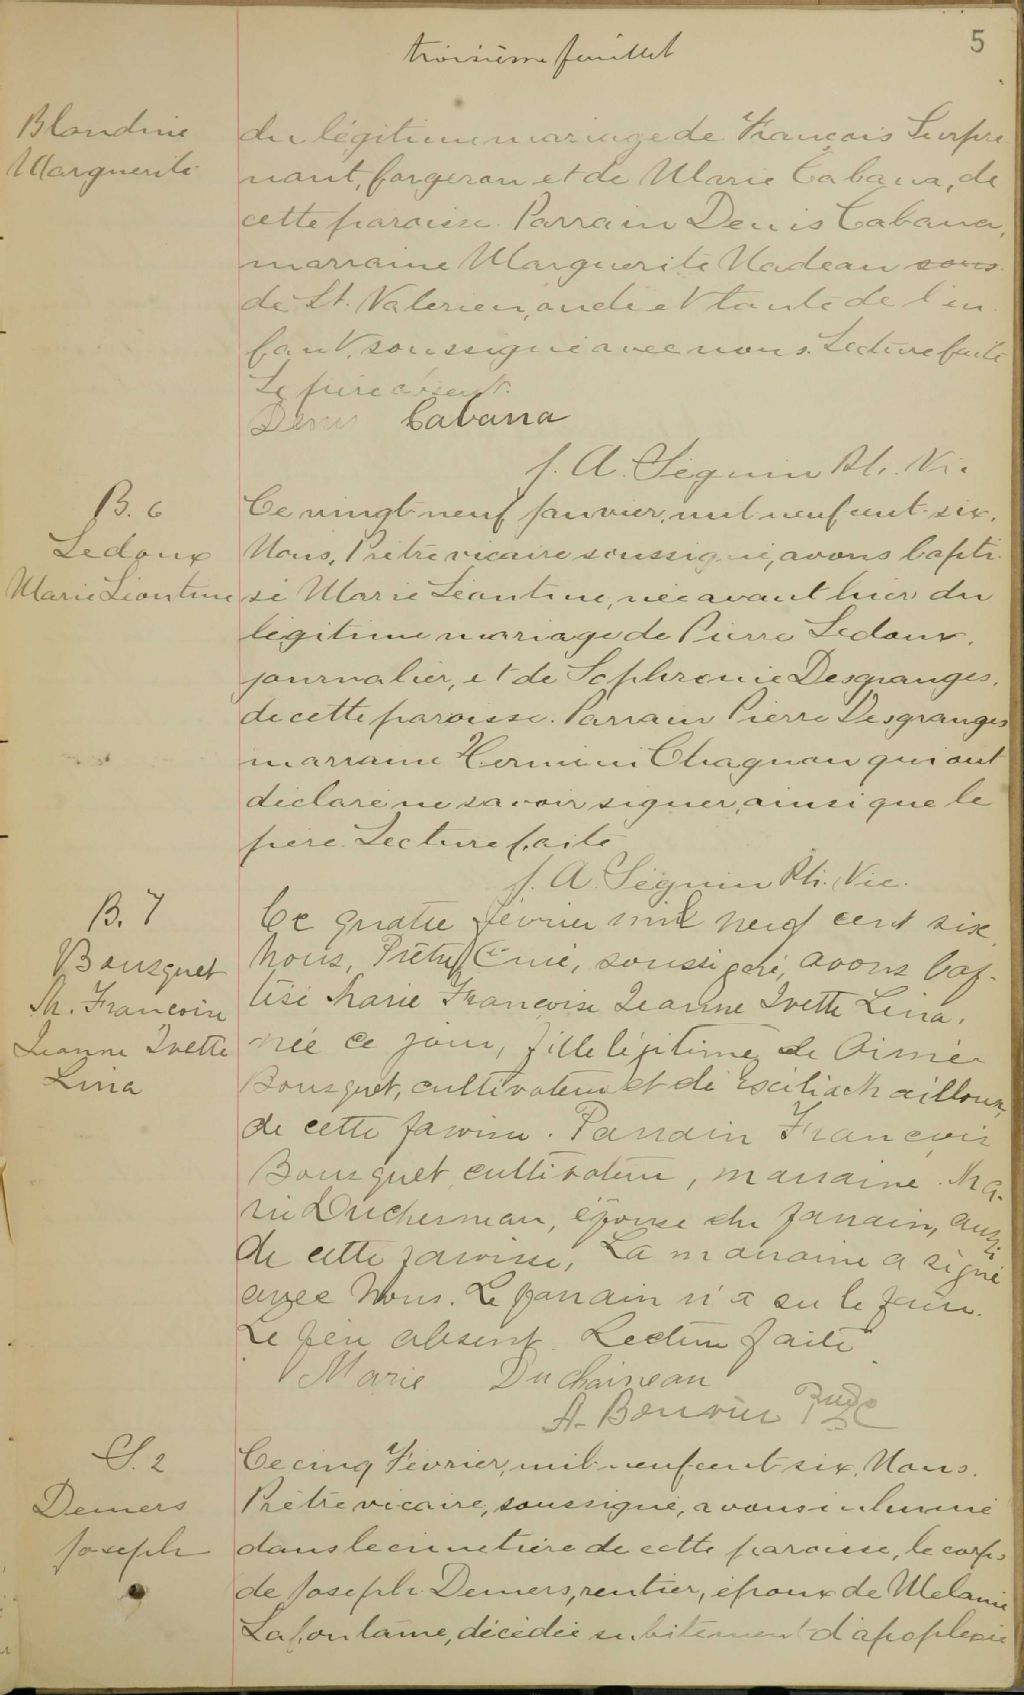 troisième feuillet
5
Blandine
Marguerite
du légitime mariage de François Surpre
nant, forgeron et de Marie Cabana, de
cette paroisse. Parrain Denis Cabana,
marraine Marguerite Nadeau sous
de St. Valerien, oncle et tante de l'en
fant, soussigné avec nous. Lecture faite
Le père absent.
Denis Cabana
J. A. Séguin Ptr. Vic
B. 6
Ledoux
Marie Léontine
Ce vingt-neuf janvier, mil-neuf-cent-six,
Nous, Prêtre vicaire soussigné, avons bapti
sé Marie Léontine, née avant hier du
légitime mariage de Pierre Ledoux,
journalier, et de Sophronie Desgranges,
de cette paroisse. Parrain Pierre Desgranges
marraine Hermini Chagnon qui ont
déclaré ne savoir signer, ainsi que le
père. Lecture faite
J. A. Séguin Ptr. Vic.
B. 7
Bousquet
M. Francoise
Jeanne Ivette
Lina
Ce quatre février mil neuf cent six,
Nous, Prêtre Curé, soussigné, avons bap-
tisé Marie Francoise Jeanne Ivette Lina,
née ce jour, fille légitime de Aimé
Bousquet, cultivateur et de Exilia Mailloux,
de cette paroisse. Parrain Francois
Bousquet cultivateur, marraine Ma-
rie Ducherneau, épouse du parrain, aussi
de cette paroisse, La marraine a signé
avec Nous. Le parrain n'a su le faire.
Le père absent Lecture faite
Marie Duchaineau
A. Beauvin Ptre
S. 2
Demers
Joseph
Ce cinq Février, mil-neuf-cent-six, Nous,
Prêtre vicaire, soussigné, avons inhumé
dans le cimetière de cette paroisse, le corps
de Joseph Demers, rentier, époux de Melanie
Lafontaine, décédée subitement d'apoplexie